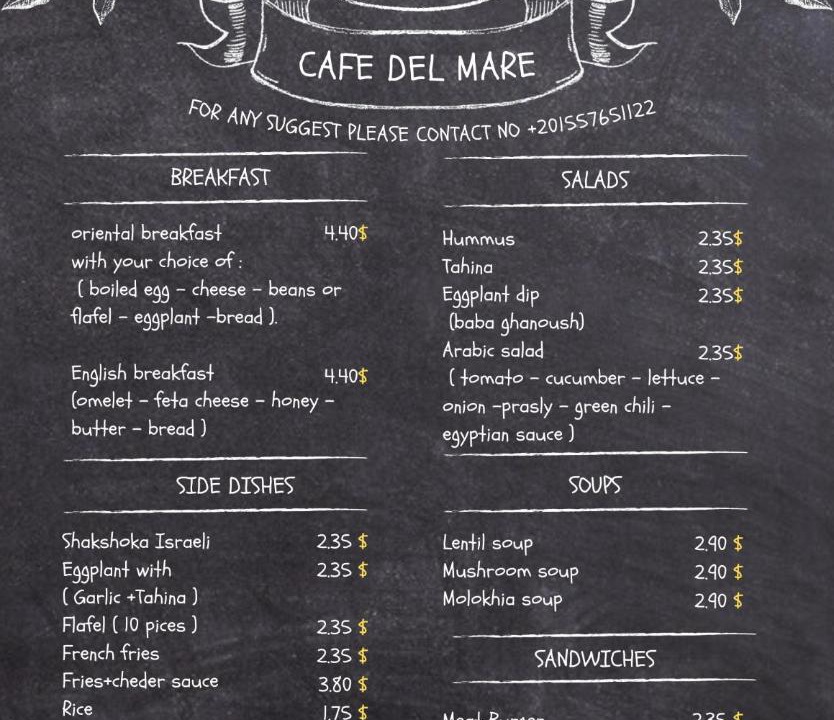 CAFE DEL MARE
FOR ANY SUGGEST PLEASE CONTACT NO +201557651122
BREAKFAST
oriental breakfast 4.40$
with your choice of :
( boiled egg - cheese - beans or
flafel - eggplant -bread ).
English breakfast 4.40$
(omelet - feta cheese - honey -
butter - bread )
SIDE DISHES
Shakshoka Israeli 2.35 $
Eggplant with 2.35 $
( Garlic +Tahina )
Flafel ( 10 pices ) 2.35 $
French fries 2.35 $
Fries+cheder sauce 3.80 $
Rice 1.75 $
SALADS
Hummus 2.35$
Tahina 2.35$
Eggplant dip 2.35$
(baba ghanoush)
Arabic salad 2.35$
( tomato - cucumber - lettuce -
onion -prasly - green chili -
egyptian sauce )
SOUPS
Lentil soup 2.90 $
Mushroom soup 2.90 $
Molokhia soup 2.90 $
SANDWICHES
2.35 $